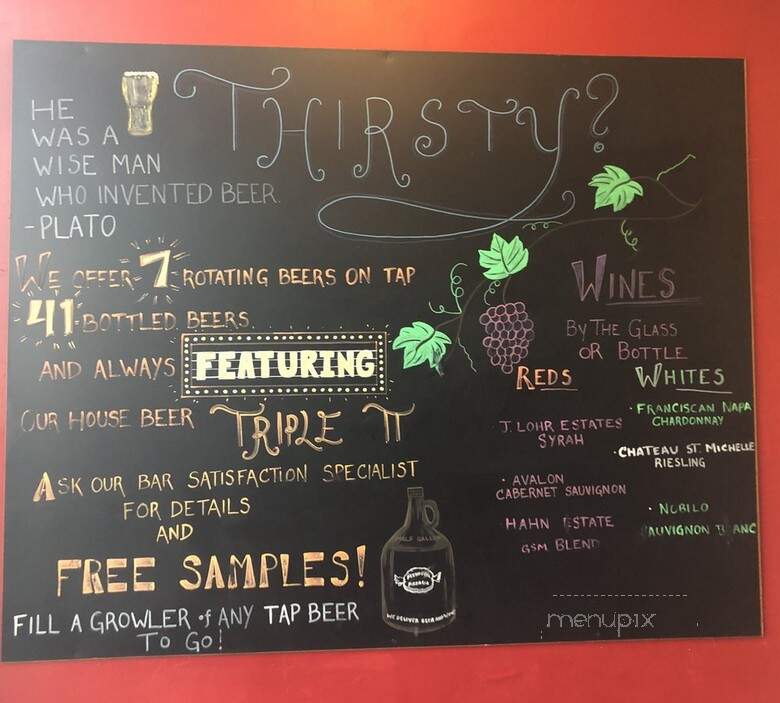 THIRSTY?
HE
WAS A
WISE MAN
WHO INVENTED BEER.
-PLATO
WE OFFER 7 ROTATING BEERS ON TAP
41 BOTTLED BEERS
AND ALWAYS FEATURING
OUR HOUSE BEER TRIPLE π
ASK OUR BAR SATISFACTION SPECIALIST
FOR DETAILS
AND
FREE SAMPLES!
FILL A GROWLER of ANY TAP BEER
TO GO!
HALF GALLON
WINES
BY THE GLASS
OR BOTTLE
REDS
J. LOHR ESTATES
SYRAH
· AVALON
CABERNET SAUVIGNON
HAHN ESTATE
GSM BLEND
WHITES
· FRANCISCAN NAPA
CHARDONNAY
· CHATEAU ST. MICHELLE
RIESLING
· NOBILO
SAUVIGNON BLANC
menupix